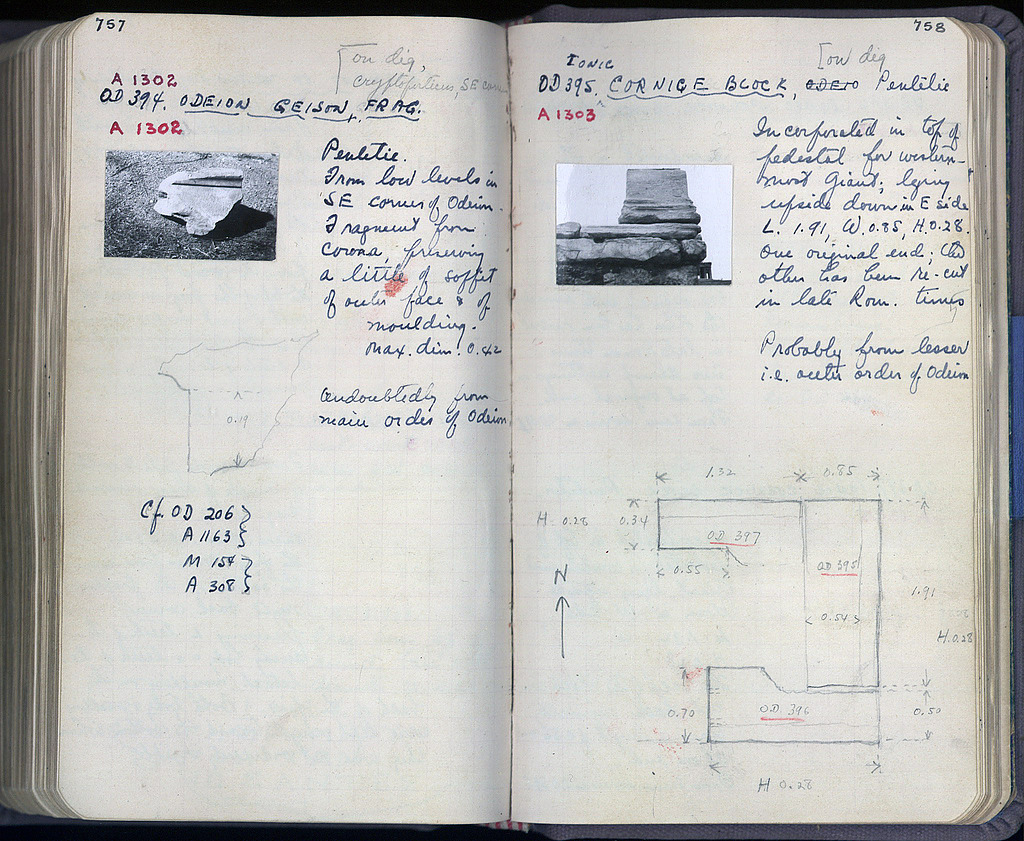 757
[on dig,
cryptoporticus, SE corner
A 1302
OD 394. ODEION GEISON, FRAG.
A 1302
Pentelic.
From low levels in
SE corner of Odeion.
Fragment from
corona, preserving
a little of soffit
of outer face & of
moulding.
Max. dim. 0.42
Undoubtedly from
main order of Odeion
0.19
Cf. OD 206
A 1163
M 154
A 308
758
[on dig
IONIC
OD 395. CORNICE BLOCK, ODEIO Pentelic
A 1303
Incorporated in top of
pedestal for western-
most Giant; lying
upside down in E side
L. 1.91, W. 0.85, H. 0.28.
One original end; the
other has been re-cut
in late Rom. times
Probably from lesser
i.e. outer order of Odeion
1.32 0.85
H. 0.28 0.34
OD 397
OD 395
0.55
N
1.91
0.54
H. 0.28
0.70
OD 396
0.50
H 0.28